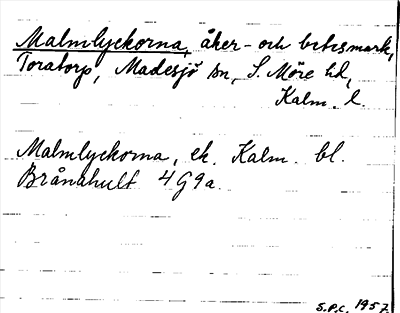 Malmlyckorna, åker- och betesmark,
Toratorp, Madesjö sn, S. Möre hd,
Kalm. l.
Malmlyckorna, ek. Kalm. bl.
Brånahult 4G9a.
S.P.C. 1957.